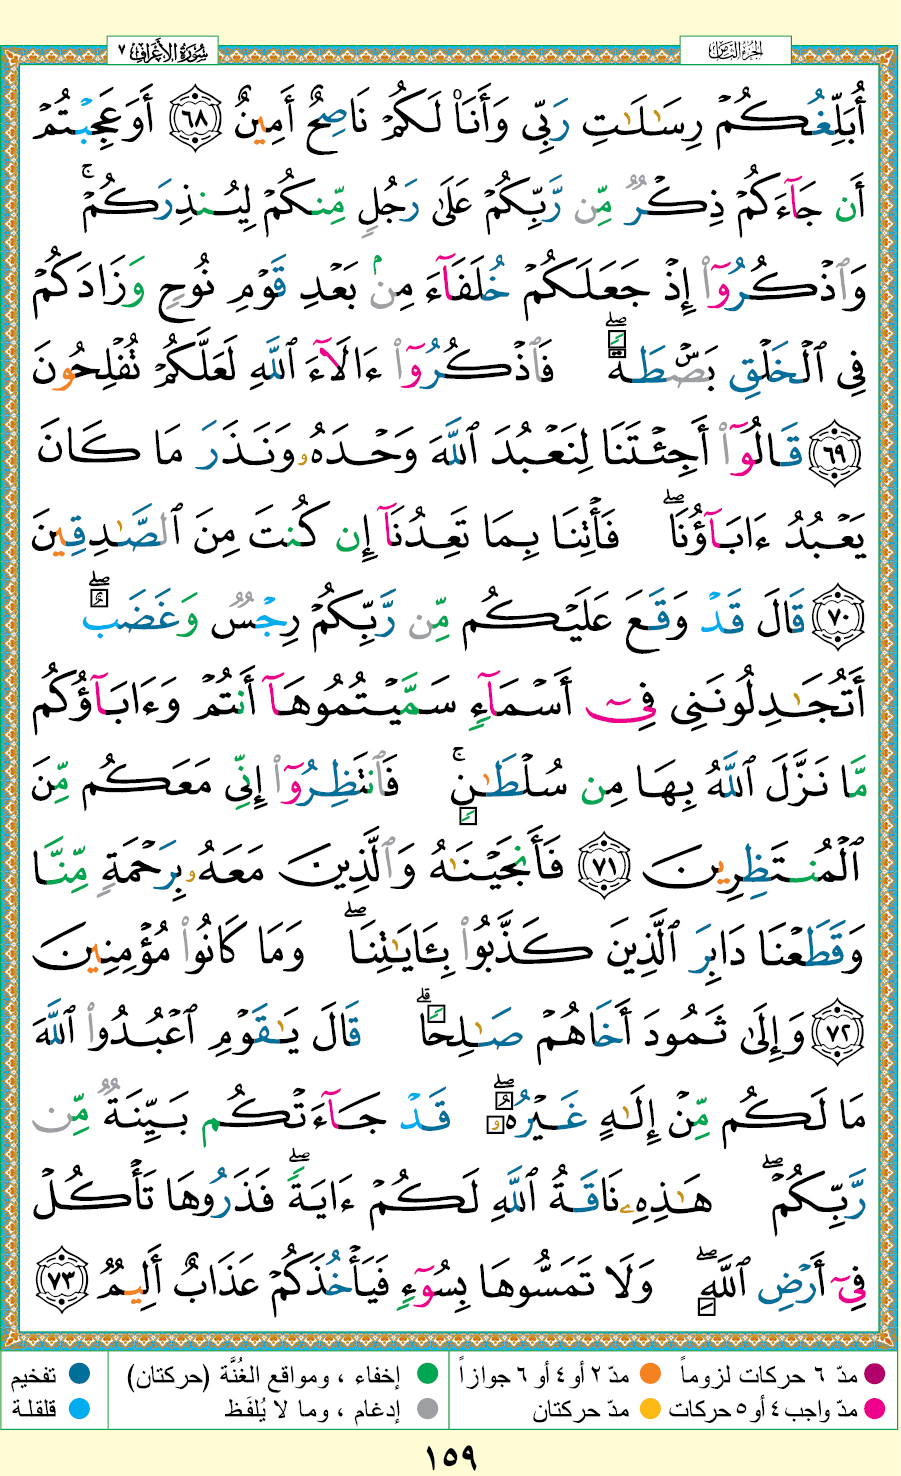 سُورَةُ الأَعْرَافِ ٧
الجُزءُ الثَّامِنُ
أُبَلِّغُكُمْ رِسَٰلَٰتِ رَبِّى وَأَنَا۠ لَكُمْ نَاصِحٌ أَمِينٌ ٦٨ أَوَعَجِبْتُمْ
أَن جَآءَكُمْ ذِكْرٌ مِّن رَّبِّكُمْ عَلَىٰ رَجُلٍ مِّنكُمْ لِيُنذِرَكُمْ ۚ
وَٱذْكُرُوٓا۟ إِذْ جَعَلَكُمْ خُلَفَآءَ مِنۢ بَعْدِ قَوْمِ نُوحٍ وَزَادَكُمْ
فِى ٱلْخَلْقِ بَصْۜطَةً ۖ فَٱذْكُرُوٓا۟ ءَالَآءَ ٱللَّهِ لَعَلَّكُمْ تُفْلِحُونَ
٦٩ قَالُوٓا۟ أَجِئْتَنَا لِنَعْبُدَ ٱللَّهَ وَحْدَهُۥ وَنَذَرَ مَا كَانَ
يَعْبُدُ ءَابَآؤُنَا ۖ فَأْتِنَا بِمَا تَعِدُنَآ إِن كُنتَ مِنَ ٱلصَّٰدِقِينَ
٧٠ قَالَ قَدْ وَقَعَ عَلَيْكُم مِّن رَّبِّكُمْ رِجْسٌ وَغَضَبٌ ۖ
أَتُجَٰدِلُونَنِى فِىٓ أَسْمَآءٍ سَمَّيْتُمُوهَآ أَنتُمْ وَءَابَآؤُكُم
مَّا نَزَّلَ ٱللَّهُ بِهَا مِن سُلْطَٰنٍ ۚ فَٱنتَظِرُوٓا۟ إِنِّى مَعَكُم مِّنَ
ٱلْمُنتَظِرِينَ ٧١ فَأَنجَيْنَٰهُ وَٱلَّذِينَ مَعَهُۥ بِرَحْمَةٍ مِّنَّا
وَقَطَعْنَا دَابِرَ ٱلَّذِينَ كَذَّبُوا۟ بِـَٔايَٰتِنَا ۖ وَمَا كَانُوا۟ مُؤْمِنِينَ
٧٢ وَإِلَىٰ ثَمُودَ أَخَاهُمْ صَٰلِحًا ۗ قَالَ يَٰقَوْمِ ٱعْبُدُوا۟ ٱللَّهَ
مَا لَكُم مِّنْ إِلَٰهٍ غَيْرُهُۥ ۖ قَدْ جَآءَتْكُم بَيِّنَةٌ مِّن
رَّبِّكُمْ ۖ هَٰذِهِۦ نَاقَةُ ٱللَّهِ لَكُمْ ءَايَةً ۖ فَذَرُوهَا تَأْكُلْ
فِىٓ أَرْضِ ٱللَّهِ ۖ وَلَا تَمَسُّوهَا بِسُوٓءٍ فَيَأْخُذَكُمْ عَذَابٌ أَلِيمٌ ٧٣
مدّ ٦ حركات لزوماً مدّ ٢ أو ٤ أو ٦ جوازاً إخفاء ، ومواقع الغُنَّة (حركتان) تفخيم
مدّ واجب ٤ أو ٥ حركات مدّ حركتان إدغام ، وما لا يُلفَظ قلقلة
١٥٩